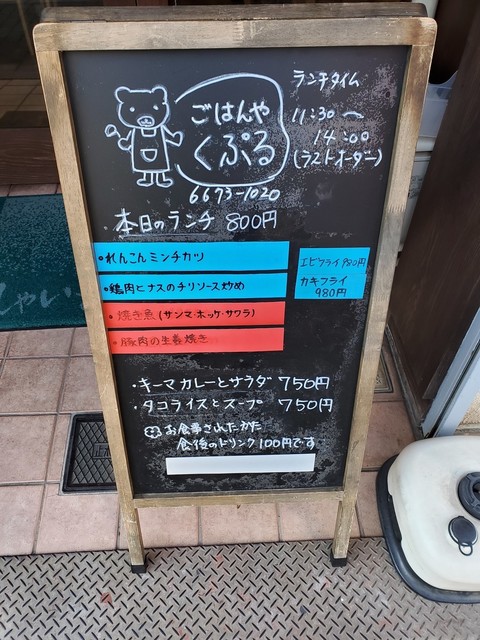 ごはんや
くぷる
6673-1020
ランチタイム
11:30〜
14:00
(ラストオーダー)
本日のランチ 800円
・れんこんミンチカツ
・鶏肉とナスのチリソース炒め
・焼き魚(サンマ・ホッケ・サワラ)
・豚肉の生姜焼き
エビフライ 980円
カキフライ
980円
・キーマカレーとサラダ 750円
・タコライスとスープ 750円
お食事されたかた
食後のドリンク100円です